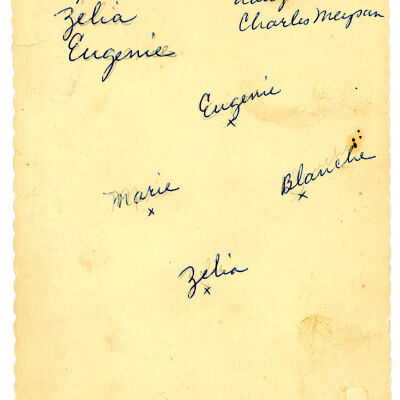 Zelia
Charles Meyson
Eugenie
Eugenie
x
Blanche
x
Marie
x
Zelia
x